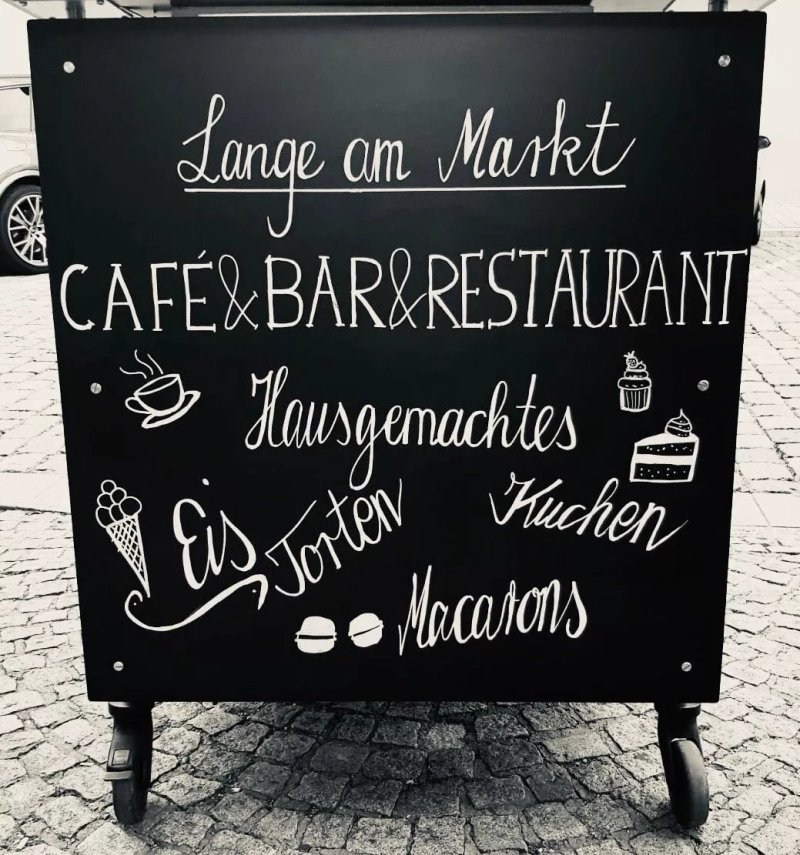 Lange am Markt
CAFÉ&BAR&RESTAURANT
Hausgemachtes
Eis Torten Kuchen
Macarons